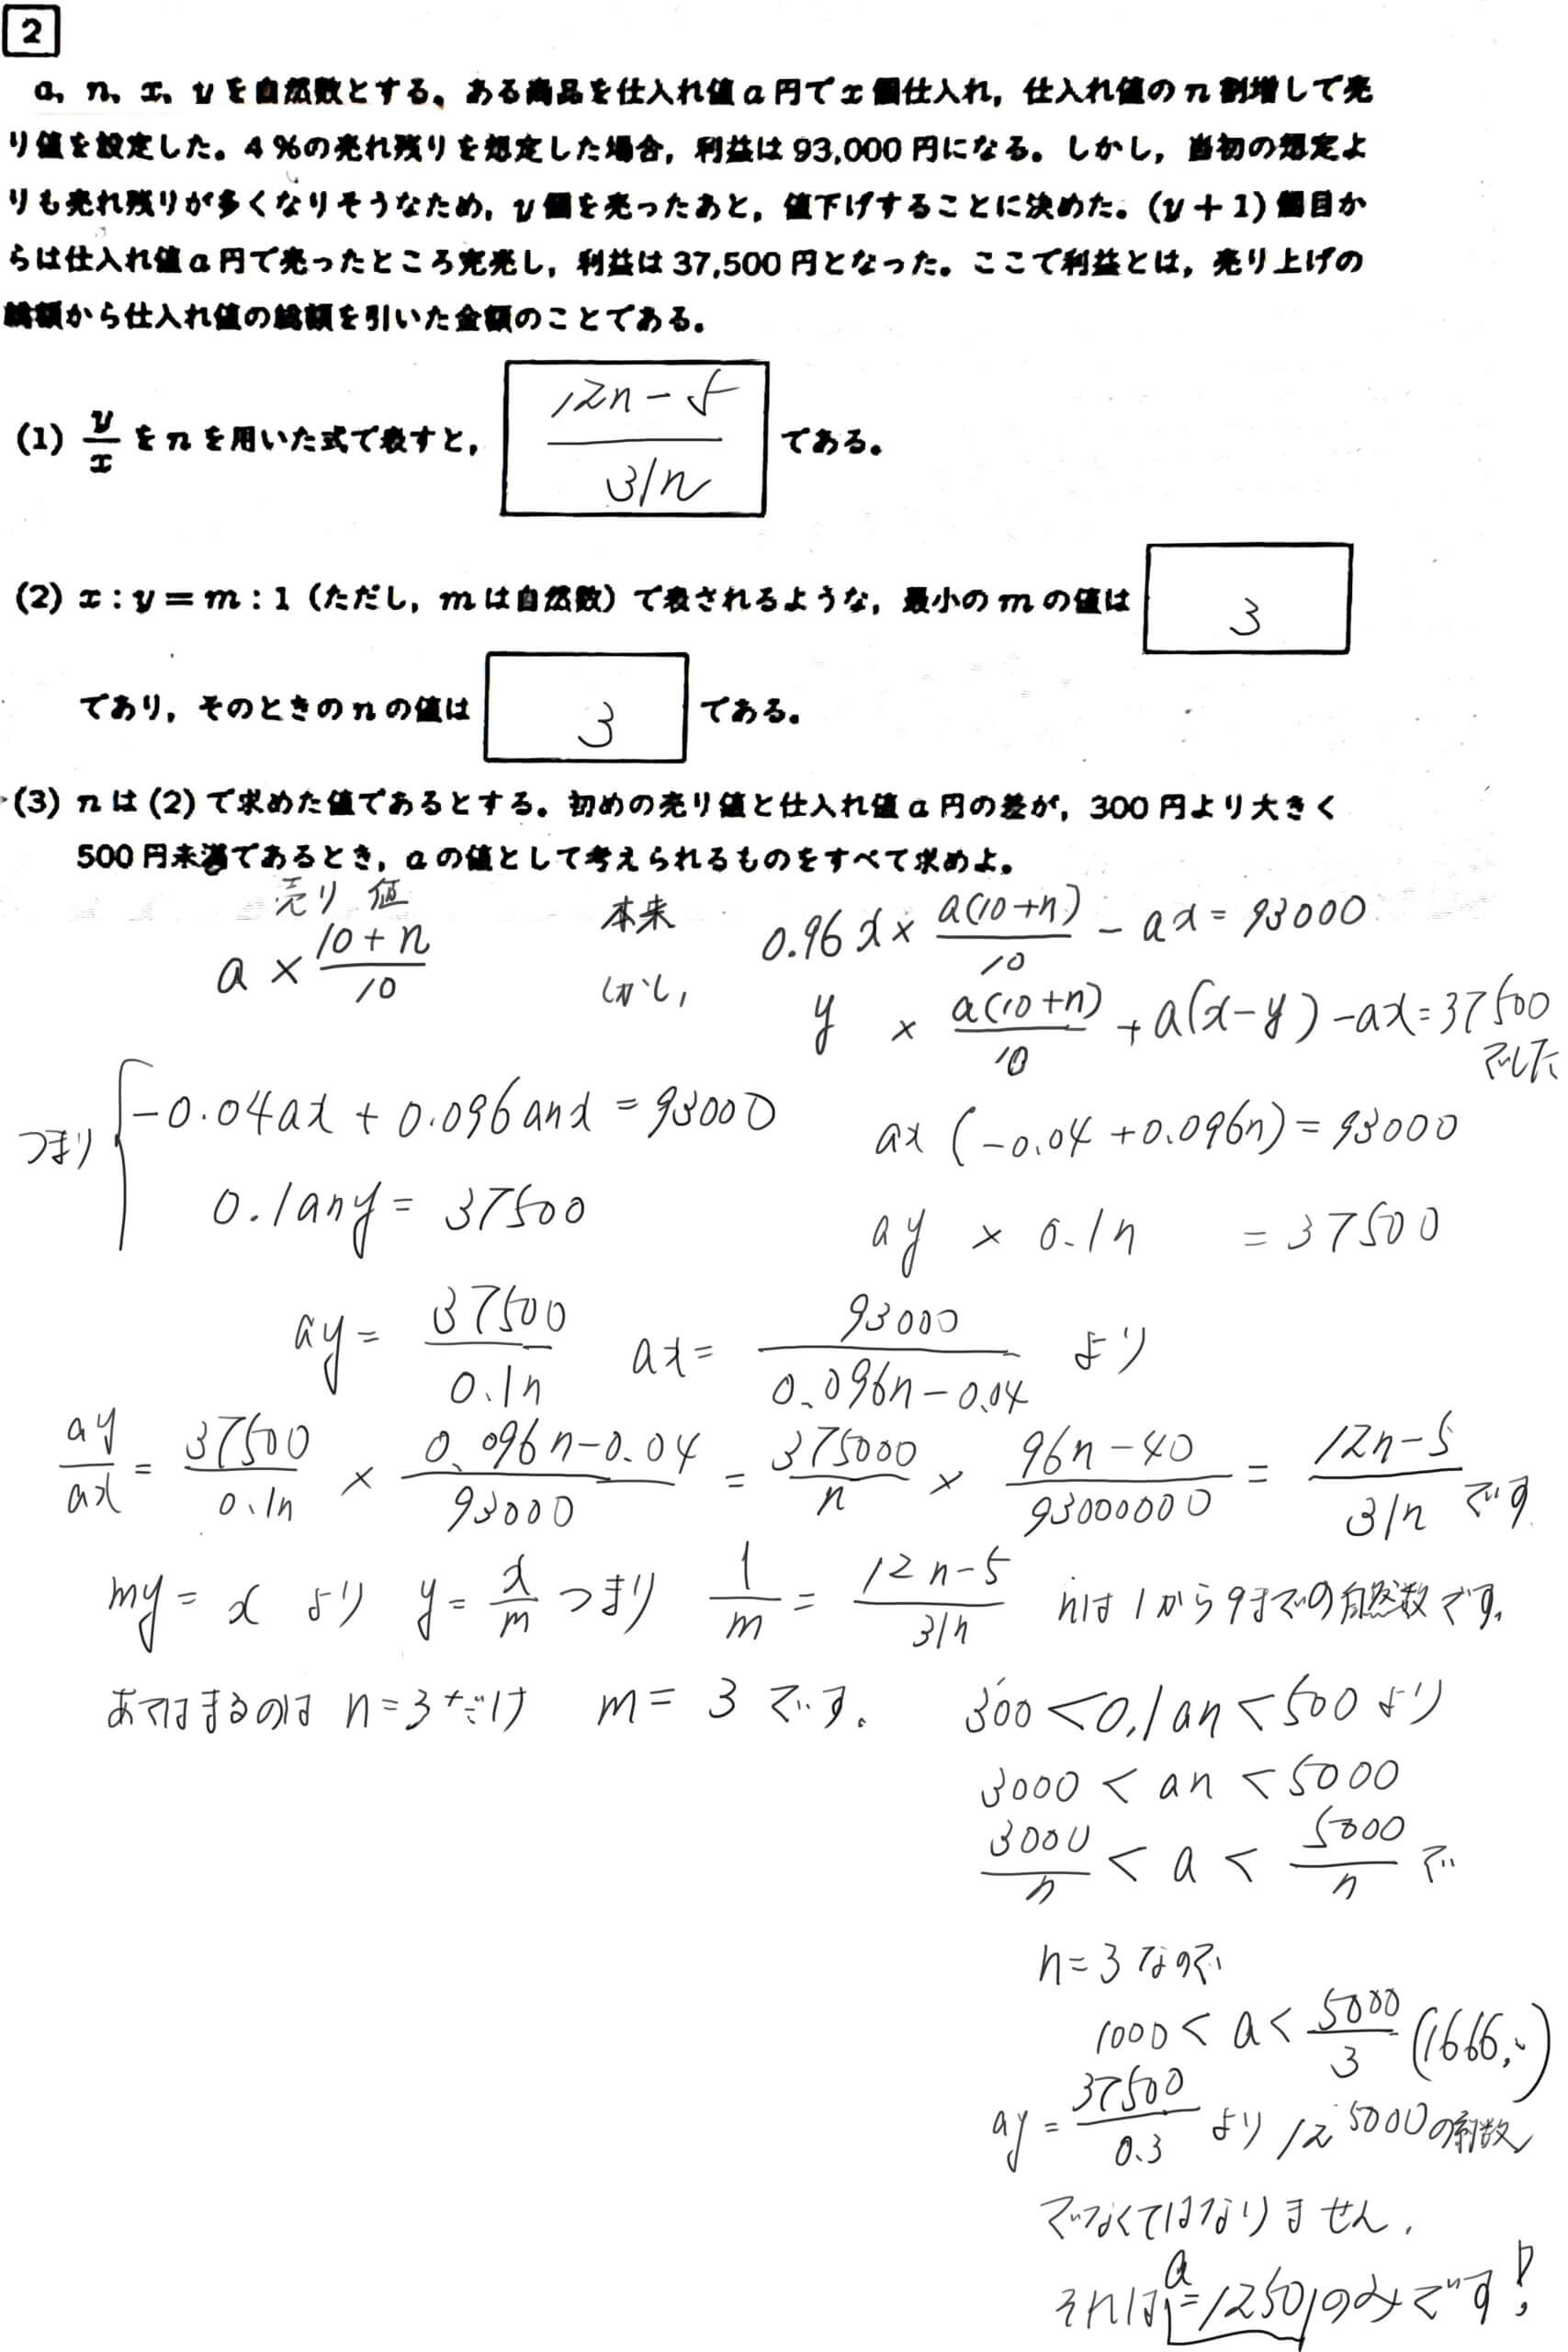 2
a, n, x, y を自然数とする。ある商品を仕入れ値 a 円で x 個仕入れ，仕入れ値の n 割増して売
り値を設定した。4 %の売れ残りを想定した場合，利益は 93,000 円になる。しかし，当初の想定よ
りも売れ残りが多くなりそうなため，y 個を売ったあと，値下げすることに決めた。(y + 1) 個目か
らは仕入れ値 a 円で売ったところ完売し，利益は 37,500 円となった。ここで利益とは，売り上げの
総額から仕入れ値の総額を引いた金額のことである。
(1) y/x を n を用いた式で表すと， (12n-5)/31n である。
(2) x : y = m : 1（ただし，m は自然数）で表されるような，最小の m の値は 3
であり，そのときの n の値は 3 である。
(3) n は (2) で求めた値であるとする。初めの売り値と仕入れ値 a 円の差が，300 円より大きく
500 円未満であるとき，a の値として考えられるものをすべて求めよ。
売り値 a × (10+n)/10
本来 0.96x × a(10+n)/10 - ax = 93000
しかし, y × a(10+n)/10 + a(x-y) - ax = 37500 でした
つまり { -0.04ax + 0.096anx = 93000
ax (-0.04 + 0.096n) = 93000
0.1any = 37500
ay × 0.1n = 37500
ay = 37500/0.1n ax = 93000/(0.096n-0.04) より
ay/ax = 37500/0.1n × (0.096n-0.04)/93000 = 375000/n × (96n-40)/93000000 = (12n-5)/31n です
my = x より y = x/m つまり 1/m = (12n-5)/31n nは1から9までの自然数です。
あてはまるのは n=3だけ m = 3 です。
300 < 0.1an < 500 より
3000 < an < 5000
3000/n < a < 5000/n で
n=3 なので
1000 < a < 5000/3 (1666..)
ay = 37500/0.3 より 125000の約数
でなくてはなりません.
それは a=1250 のみです!